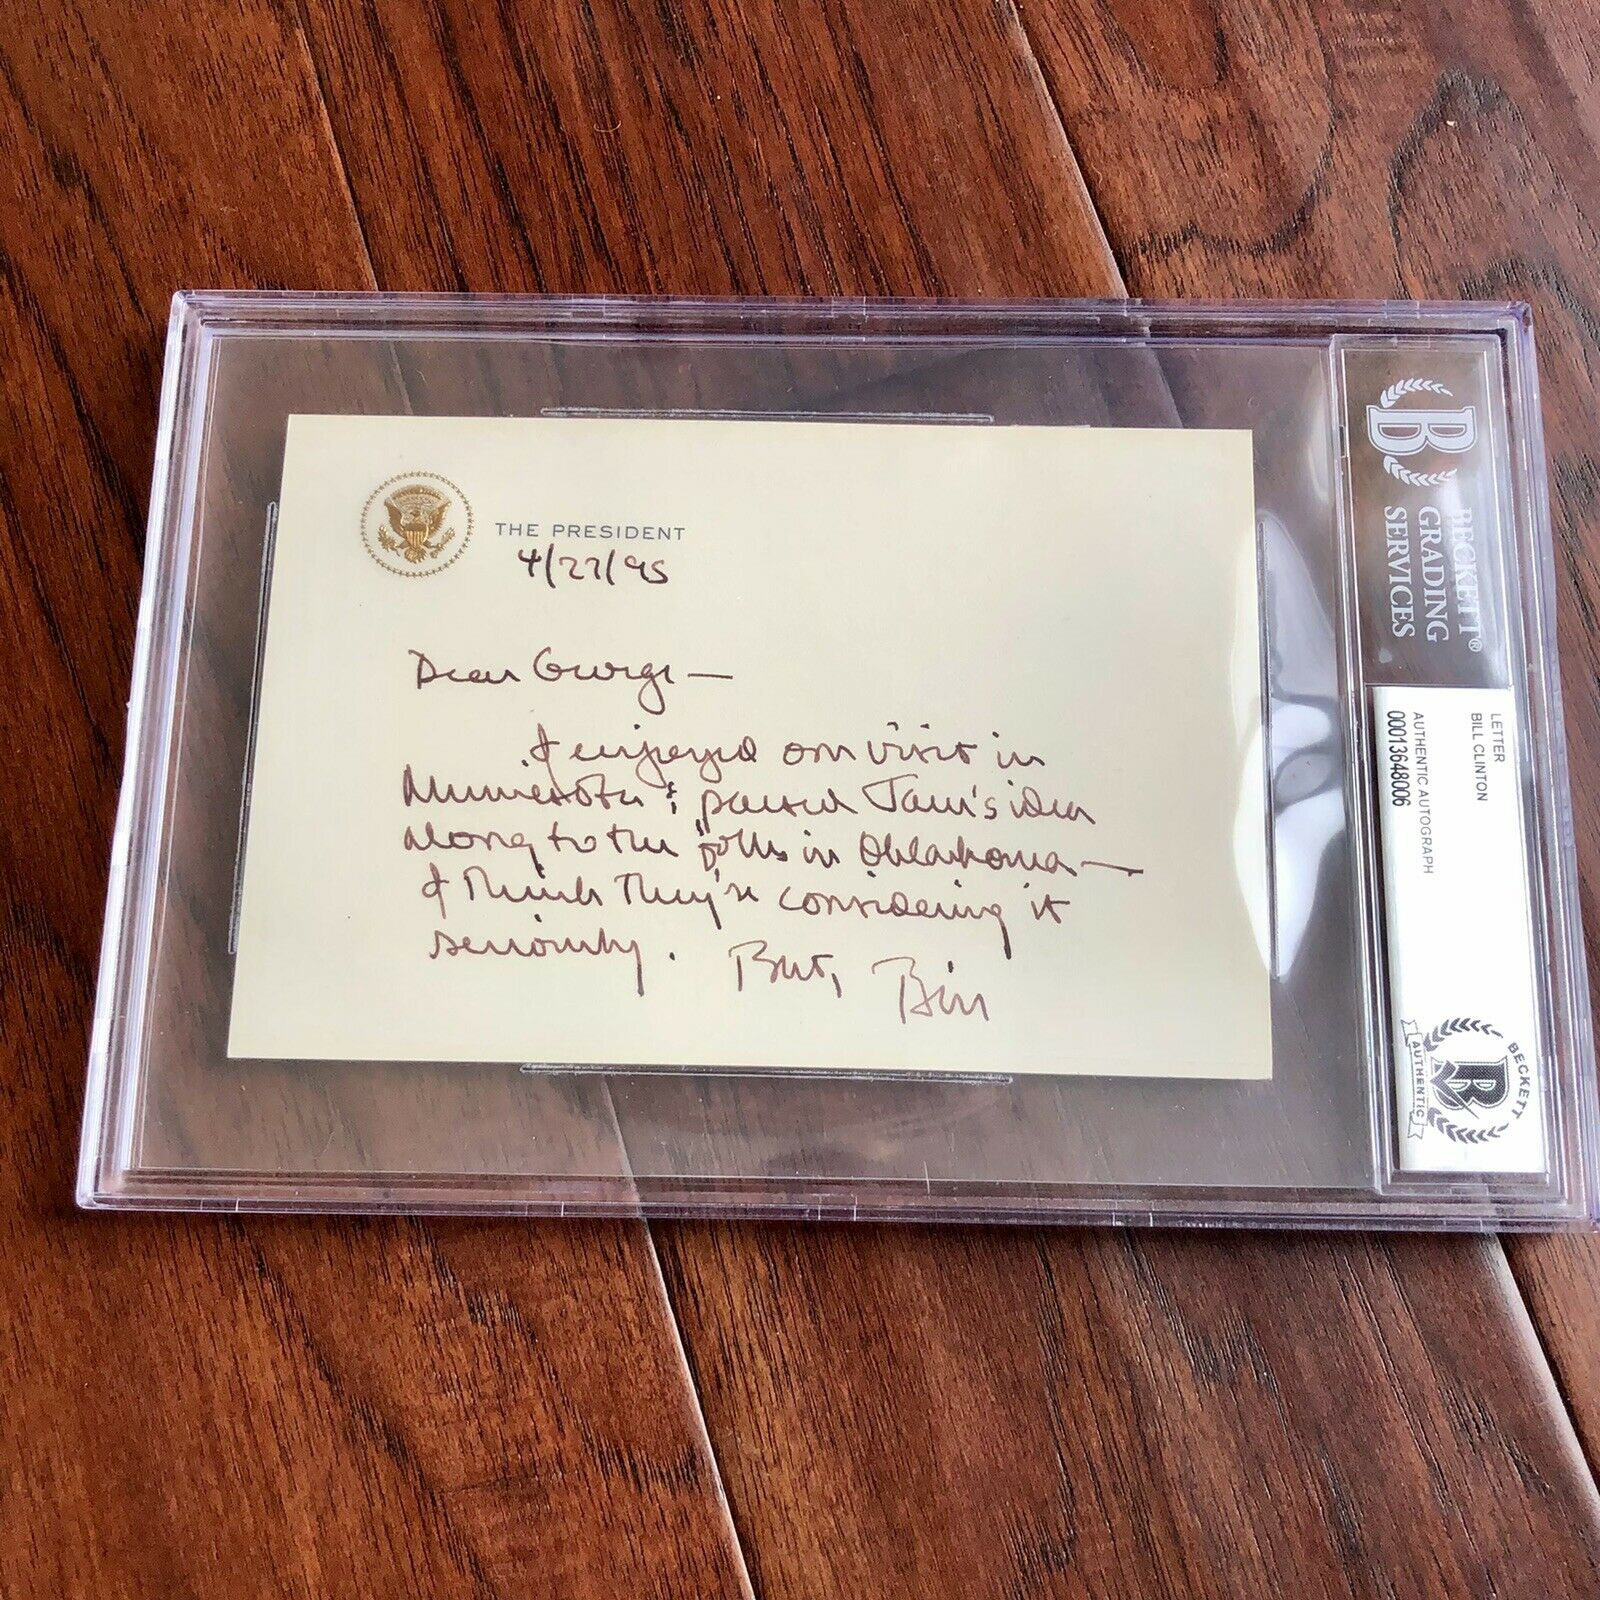 THE PRESIDENT
4/27/95
Dear George—
I enjoyed our visit in
Minnesota & passed Jane's idea
along to the folks in Oklahoma—
I think they're considering it
seriously. Best, Bill
BECKETT®
GRADING
SERVICES
LETTER
BILL CLINTON
AUTHENTIC AUTOGRAPH
00013648006
BECKETT
AUTHENTIC